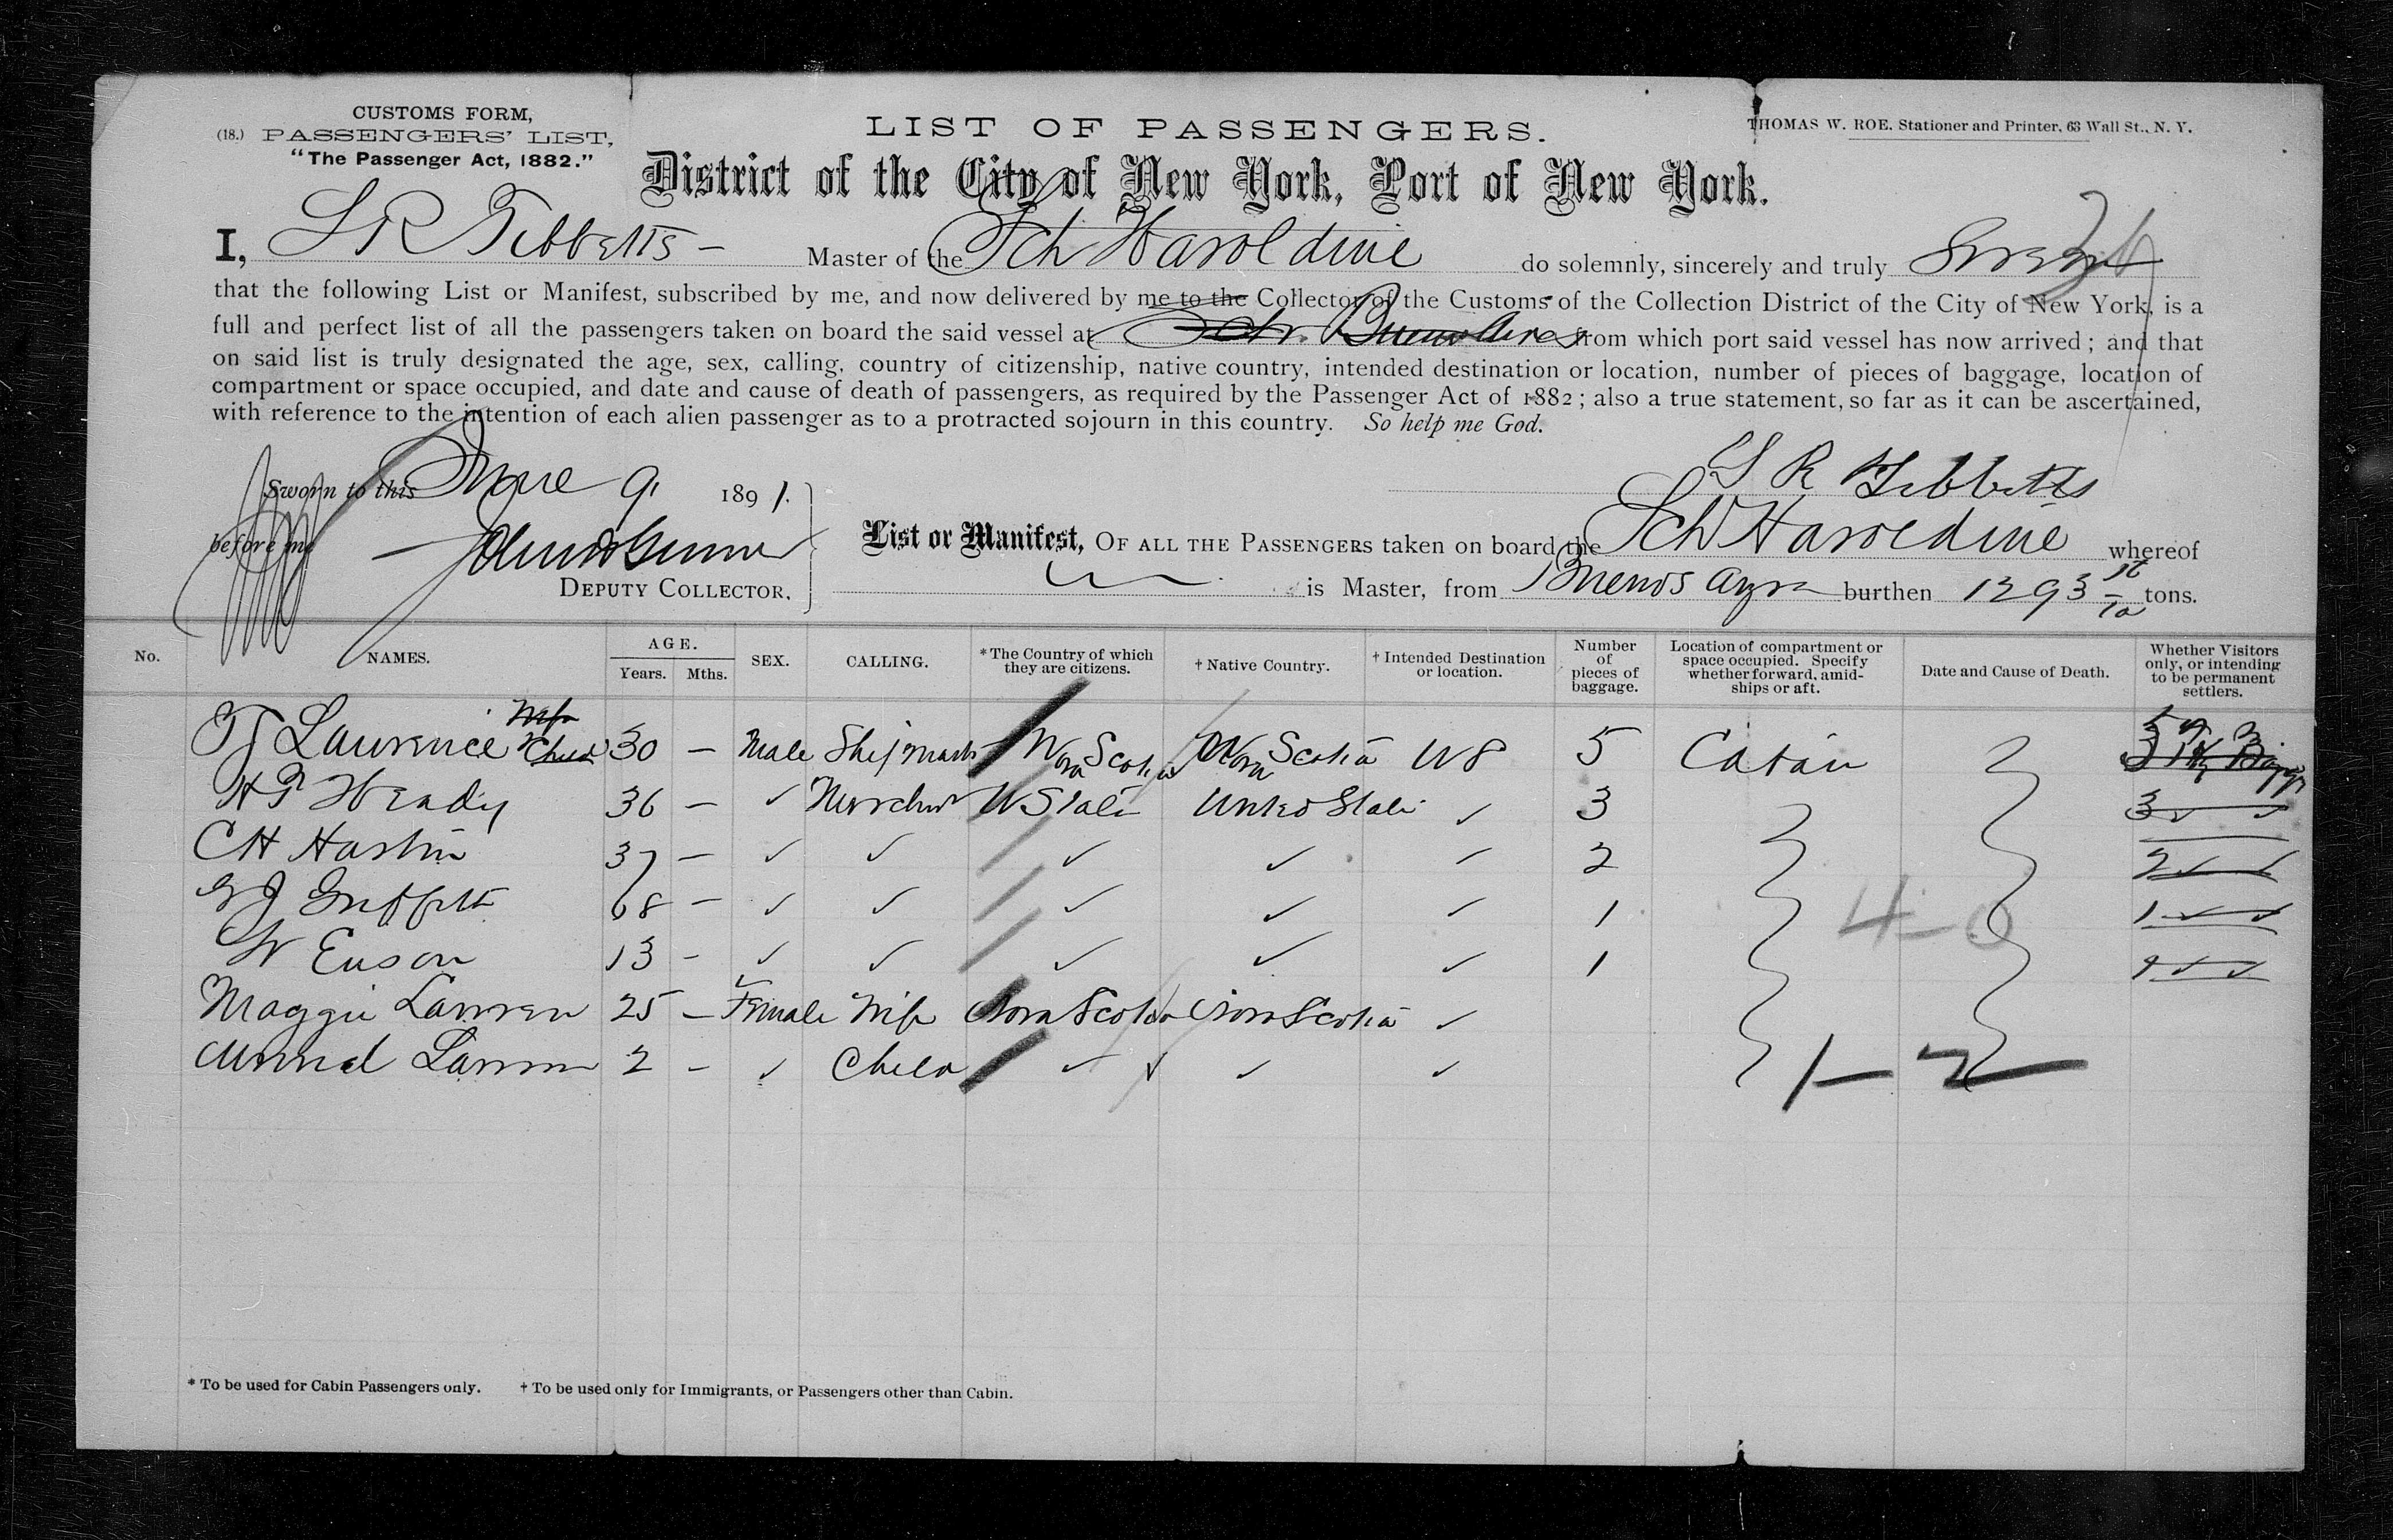 CUSTOMS FORM,
(18.) PASSENGERS' LIST,
"The Passenger Act, 1882."
LIST OF PASSENGERS.
THOMAS W. ROE, Stationer and Printer, 63 Wall St., N. Y.
District of the City of New York, Port of New York.
I, S R Tibbetts - Master of the Sch Haroldine do solemnly, sincerely and truly Swear
that the following List or Manifest, subscribed by me, and now delivered by me to the Collector of the Customs of the Collection District of the City of New York, is a
full and perfect list of all the passengers taken on board the said vessel at Buenos Aires from which port said vessel has now arrived; and that
on said list is truly designated the age, sex, calling, country of citizenship, native country, intended destination or location, number of pieces of baggage, location of
compartment or space occupied, and date and cause of death of passengers, as required by the Passenger Act of 1882; also a true statement, so far as it can be ascertained,
with reference to the intention of each alien passenger as to a protracted sojourn in this country. So help me God.
S R Tibbetts
Sworn to this June 9, 1891.
before me
DEPUTY COLLECTOR.
List or Manifest, OF ALL THE PASSENGERS taken on board the Sch Haroldine whereof
is Master, from Buenos Ayres burthen 1293 tons.
No. NAMES. AGE. Years. Mths. SEX. CALLING. *The Country of which they are citizens. † Native Country. † Intended Destination or location. Number of pieces of baggage. Location of compartment or space occupied. Specify whether forward, amidships or aft. Date and Cause of Death. Whether Visitors only, or intending to be permanent settlers.
Wife
T J Lawrence & Child 30 - Male Ship mast Nova Scotia Nova Scotia U S 5 Cabin
H P Heady 36 - ✓ Merchant U States United States ✓ 3 3 ✓ ✓
C H Haskin 37 - ✓ ✓ ✓ ✓ ✓ 2 2 ✓ ✓
G J Griffith 68 - ✓ ✓ ✓ ✓ ✓ 1 1 ✓ ✓
4-0
W Enson 13 - ✓ ✓ ✓ ✓ ✓ 1 1 ✓ ✓
Maggie Lawren 25 - Female Wife Nova Scotia Nova Scotia ✓
Lawren 2 - ✓ Child ✓ ✓ ✓
1-2
* To be used for Cabin Passengers only. † To be used only for Immigrants, or Passengers other than Cabin.